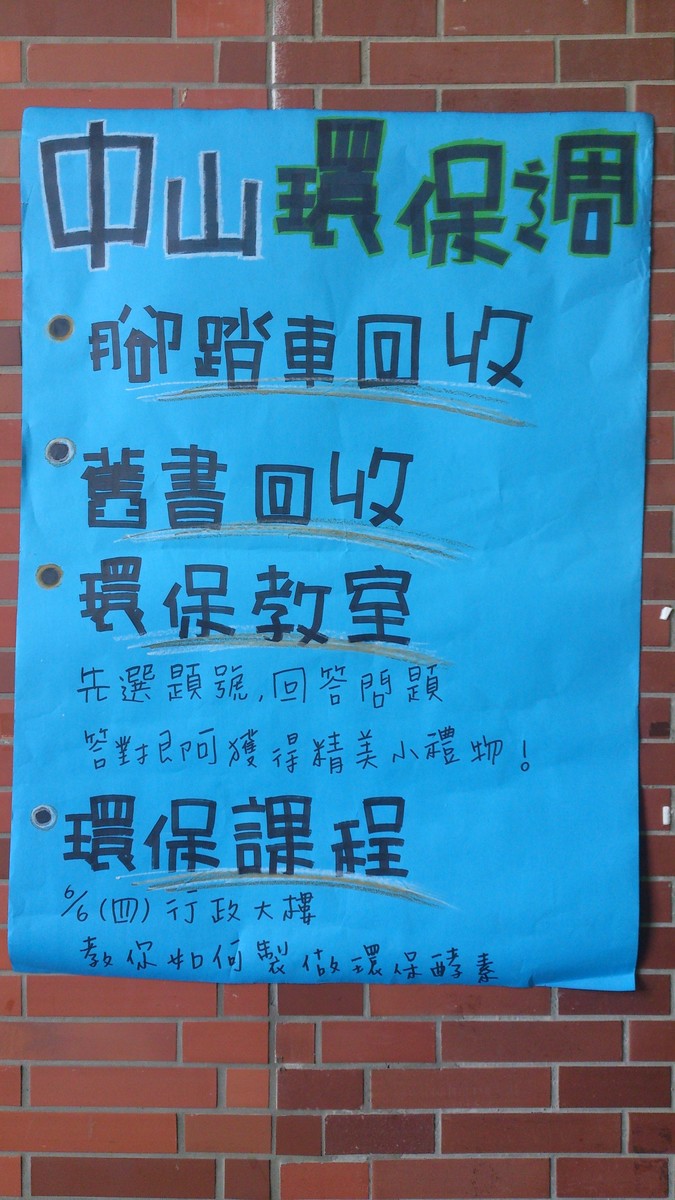 中山環保調
腳踏車回收
舊書回收
環保教室
先選題號,回答問題
答對即可獲得精美小禮物!
環保課程
6/6(四)行政大樓
教你如何製做環保酵素